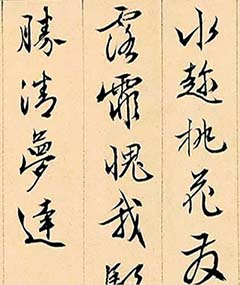 水趁桃花發
露霏愧我
勝清夢達